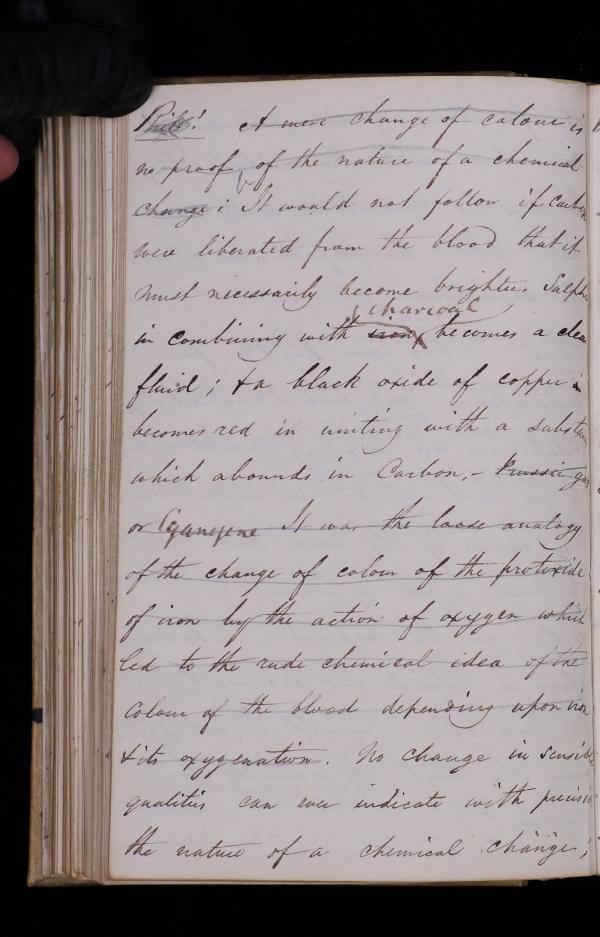 Phil.! A mere change of colour is
no proof of the nature of a chemical
change: It would not follow if Carbon
were liberated from the blood that it
must necessarily become brighter. Sulph
charcoal
in combining with iron becomes a clear
fluid; & a black oxide of copper in
becomes red in uniting with a substan
which abounds in Carbon; - Prussic gas
or Cyanogene It was the loose analogy
of the change of colour of the protoxide
of iron by the action of oxygen which
led to the rude chemical idea of the
Colour of the blood depending upon iron
& its oxygenation. No change in sensible
qualities can ever indicate with precision
the nature of a chemical change;